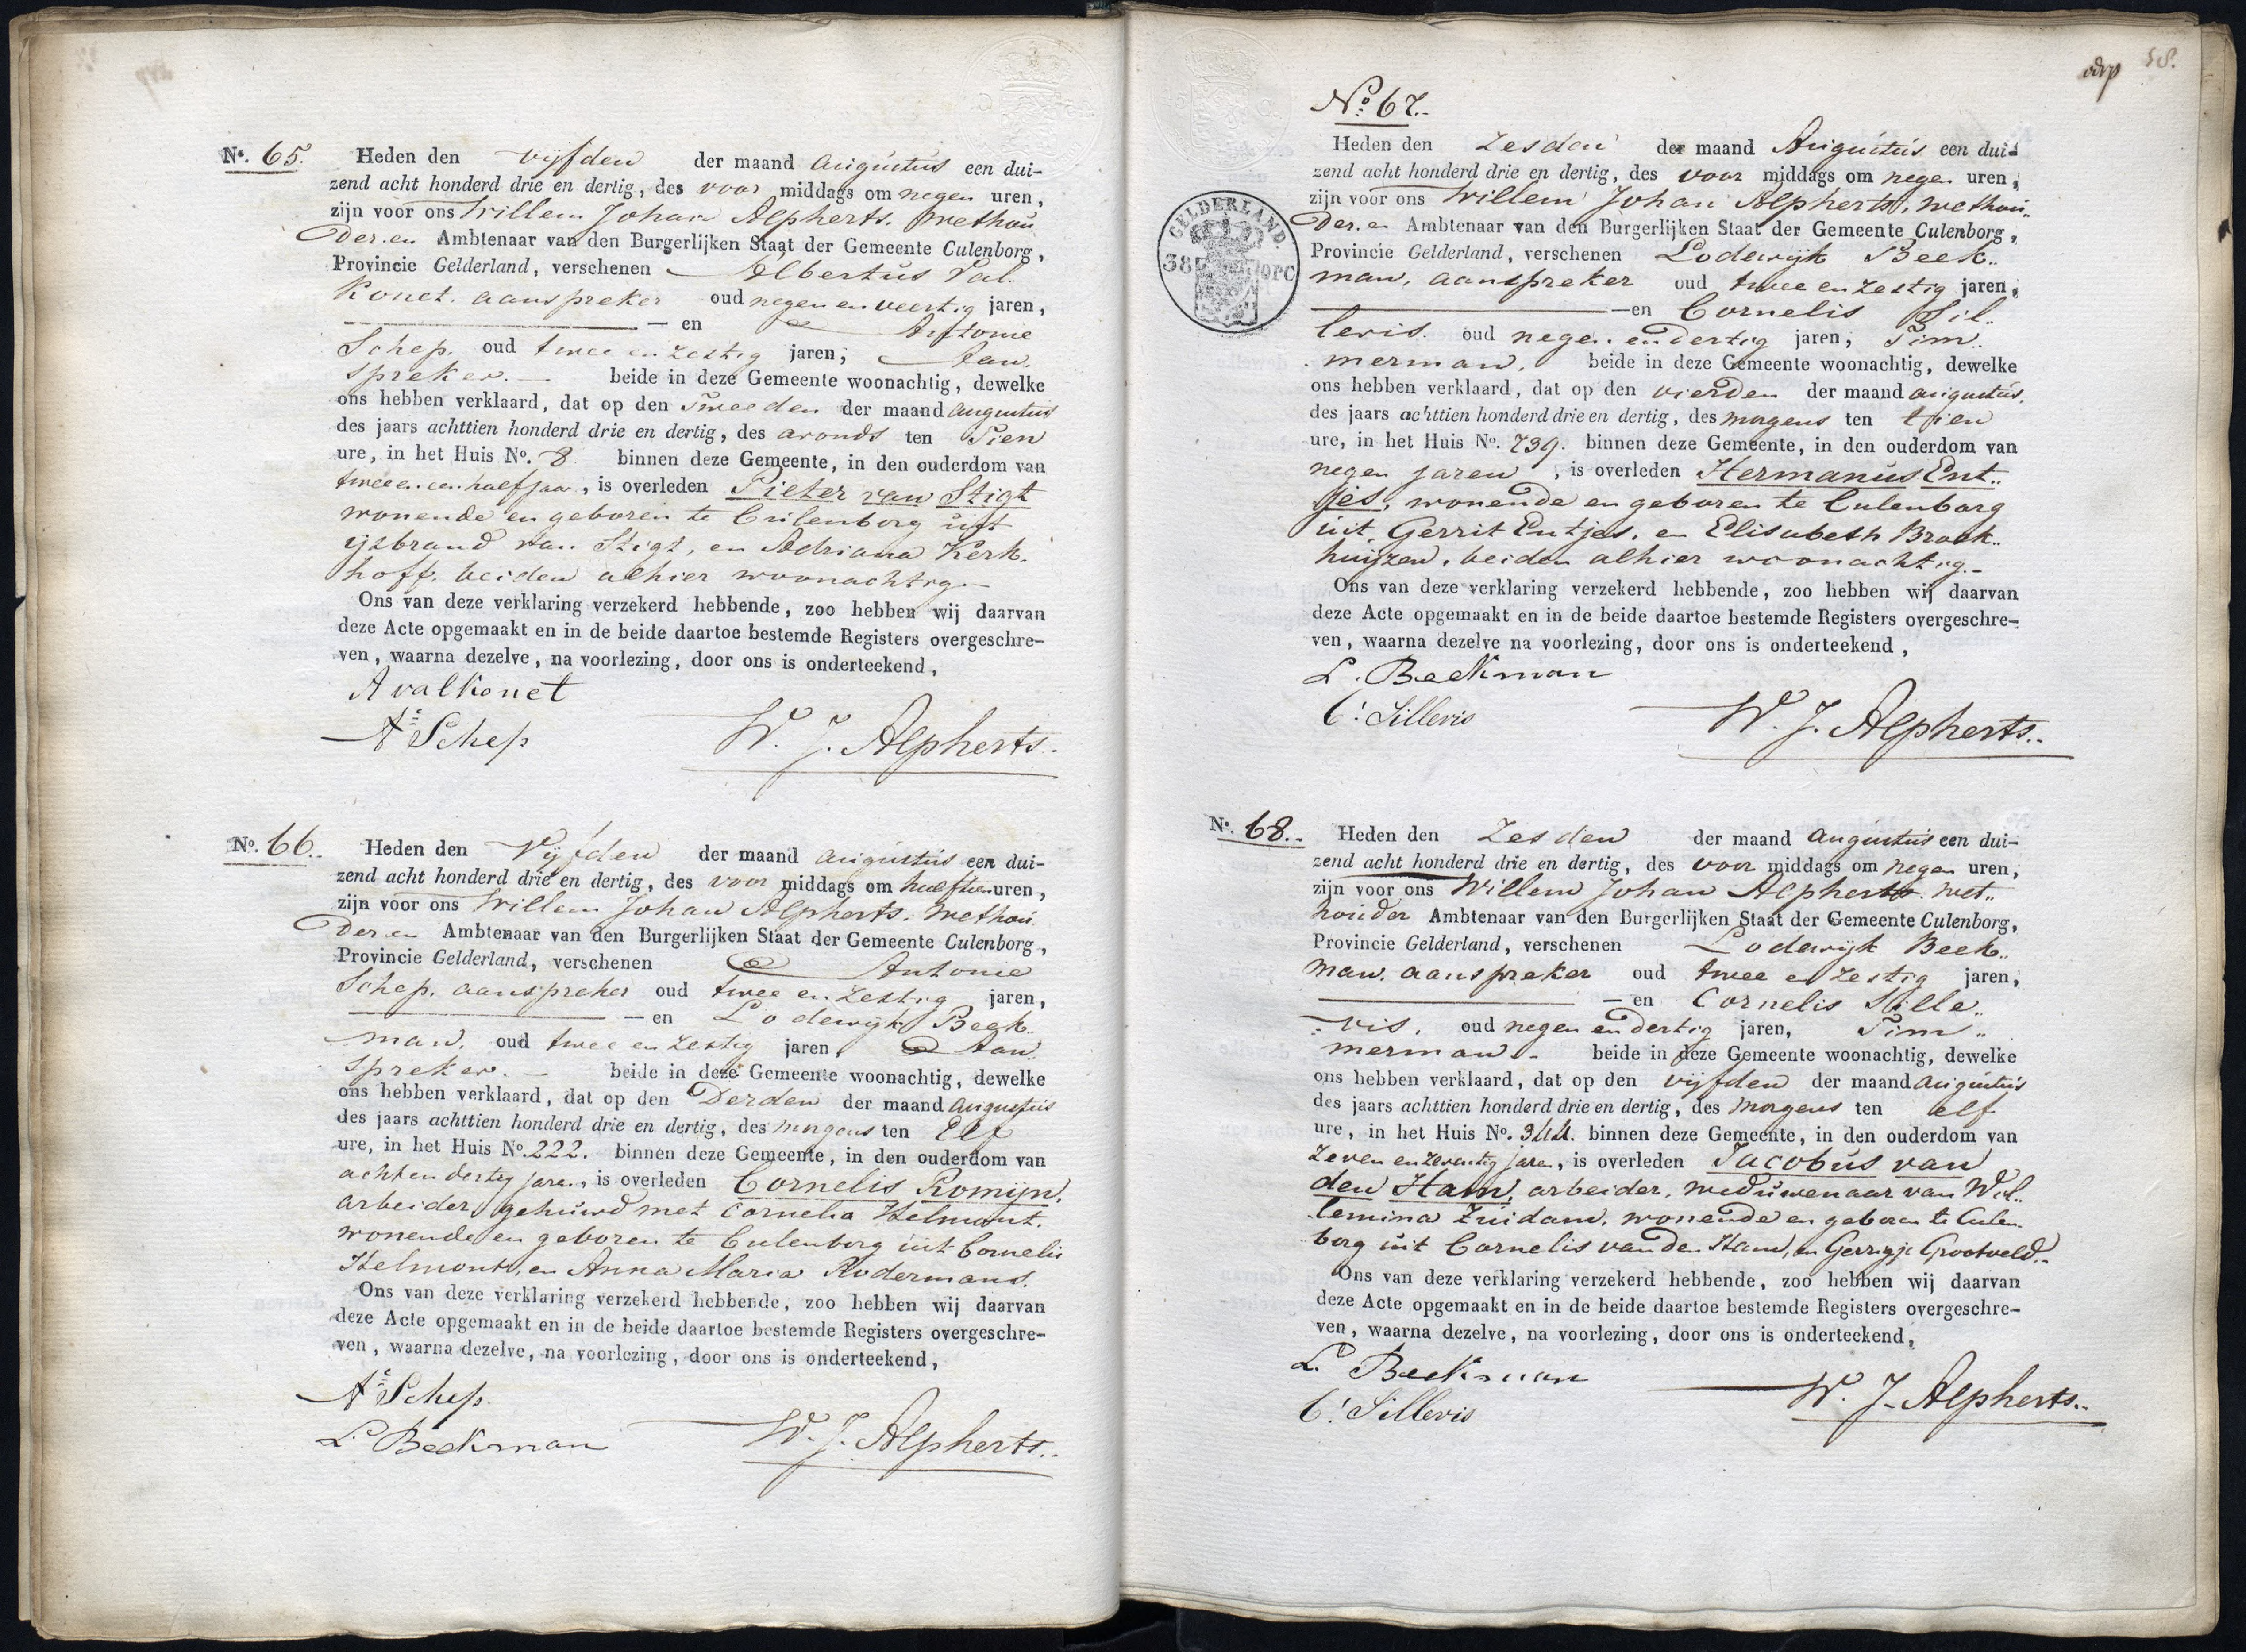 N°. 65. Heden den vijfden der maand Augustus een dui-
zend acht honderd drie en dertig, des voor middags om negen uren,
zijn voor ons Willem Johan Alpherts. Wethou
der. en Ambtenaar van den Burgerlijken Staat der Gemeente Culenborg,
Provincie Gelderland, verschenen Albertus Val
konet. aanspreker oud negen en veertig jaren,
— en Antonie
Schep. oud twee en zestig jaren, Aan.
spreker. — beide in deze Gemeente woonachtig, dewelke
ons hebben verklaard, dat op den Tweeden der maand Augustus
des jaars achttien honderd drie en dertig, des avonds ten Tien
ure, in het Huis N°. 8 binnen deze Gemeente, in den ouderdom van
twee en een half jaar, is overleden Pieter van Stigt
wonende en geboren te Culenborg uit
ijsbrand van Stigt, en Adriana Kerk.
hoff. beiden alhier woonachtig. —
Ons van deze verklaring verzekerd hebbende, zoo hebben wij daarvan
deze Acte opgemaakt en in de beide daartoe bestemde Registers overgeschre-
ven, waarna dezelve, na voorlezing, door ons is onderteekend,
A valkonet
As Schep
W. J. Alpherts.
N°. 66. Heden den Vijfden der maand Augustus een dui-
zend acht honderd drie en dertig, des voor middags om half tien uren,
zijn voor ons Willem Johan Alpherts. Wethou
der en Ambtenaar van den Burgerlijken Staat der Gemeente Culenborg,
Provincie Gelderland, verschenen Antonie
Schep. aanspreker oud twee en zestig jaren,
— en Lodewijk Beek..
man, oud twee en zestig jaren, Aan.
spreker. — beide in deze Gemeente woonachtig, dewelke
ons hebben verklaard, dat op den Derden der maand Augustus
des jaars achttien honderd drie en dertig, des morgens ten Elf
ure, in het Huis N°. 222. binnen deze Gemeente, in den ouderdom van
acht en dertig jaren, is overleden Cornelis Romijn.
arbeider, gehuwd met Cornelia Helmont.
wonende en geboren te Culenborg uit Cornelis
Helmont, en Anna Maria Rodermans.
Ons van deze verklaring verzekerd hebbende, zoo hebben wij daarvan
deze Acte opgemaakt en in de beide daartoe bestemde Registers overgeschre-
ven, waarna dezelve, na voorlezing, door ons is onderteekend,
As Schep
L. Beekman
W. J. Alpherts..
58.
GELDERLAND
N°. 67..
Heden den Zesden der maand Augustus een dui-
zend acht honderd drie en dertig, des voor middags om negen uren,
zijn voor ons Willem Johan Alpherts, Wethou..
der. en Ambtenaar van den Burgerlijken Staat der Gemeente Culenborg,
Provincie Gelderland, verschenen Lodewijk Beek..
man, aanspreker oud twee en zestig jaren,
— en Cornelis Sil..
levis. oud negen en dertig jaren, Tim..
merman. beide in deze Gemeente woonachtig, dewelke
ons hebben verklaard, dat op den vierden der maand Augustus.
des jaars achttien honderd drie en dertig, des morgens ten tien
ure, in het Huis N°. 739. binnen deze Gemeente, in den ouderdom van
negen jaren, is overleden Hermanus Ent..
jes, wonende en geboren te Culenborg
uit Gerrit Entjes, en Elisabeth Broek..
huijzen, beiden alhier woonachtig. —
Ons van deze verklaring verzekerd hebbende, zoo hebben wij daarvan
deze Acte opgemaakt en in de beide daartoe bestemde Registers overgeschre-
ven, waarna dezelve na voorlezing, door ons is onderteekend,
L. Beekman
C: Sillevis
W. J. Alpherts..
N°. 68.. Heden den Zesden der maand Augustus een dui-
zend acht honderd drie en dertig, des voor middags om negen uren,
zijn voor ons Willem Johan Alpherts. Wet..
houder Ambtenaar van den Burgerlijken Staat der Gemeente Culenborg,
Provincie Gelderland, verschenen Lodewijk Beek..
man. aanspreker oud twee en zestig jaren,
— en Cornelis Sille..
vis. oud negen en dertig jaren, Tim..
merman. — beide in deze Gemeente woonachtig, dewelke
ons hebben verklaard, dat op den vijfden der maand Augustus
des jaars achttien honderd drie en dertig, des morgens ten elf
ure, in het Huis N°. 344. binnen deze Gemeente, in den ouderdom van
zeven en zeventig jaren, is overleden Jacobus van
den Ham, arbeider, weduwenaar van Wil..
lemina Zuidam, wonende en geboren te Culen.
borg uit Cornelis van den Ham, en Gerrigje Grootveld..
Ons van deze verklaring verzekerd hebbende, zoo hebben wij daarvan
deze Acte opgemaakt en in de beide daartoe bestemde Registers overgeschre-
ven, waarna dezelve, na voorlezing, door ons is onderteekend,
L. Beekman
C: Sillevis
W. J. Alpherts..